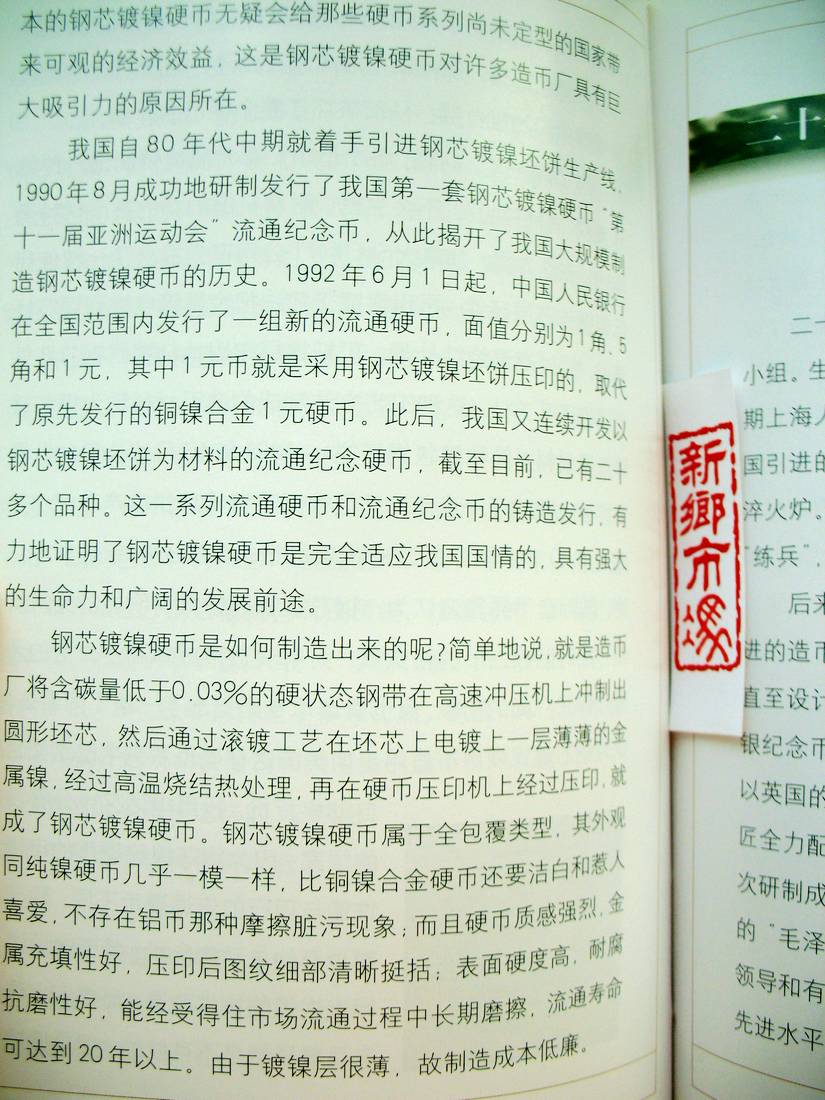 本的钢芯镀镍硬币无疑会给那些硬币系列尚未定型的国家带
来可观的经济效益，这是钢芯镀镍硬币对许多造币厂具有巨
大吸引力的原因所在。
我国自80年代中期就着手引进钢芯镀镍坯饼生产线，
1990年8月成功地研制发行了我国第一套钢芯镀镍硬币“第
十一届亚洲运动会”流通纪念币，从此揭开了我国大规模制
造钢芯镀镍硬币的历史。1992年6月1日起，中国人民银行
在全国范围内发行了一组新的流通硬币，面值分别为1角、5
角和1元，其中1元币就是采用钢芯镀镍坯饼压印的，取代
了原先发行的铜镍合金1元硬币。此后，我国又连续开发以
钢芯镀镍坯饼为材料的流通纪念硬币，截至目前，已有二十
多个品种。这一系列流通硬币和流通纪念币的铸造发行，有
力地证明了钢芯镀镍硬币是完全适应我国国情的，具有强大
的生命力和广阔的发展前途。
钢芯镀镍硬币是如何制造出来的呢?简单地说，就是造币
厂将含碳量低于0.03%的硬状态钢带在高速冲压机上冲制出
圆形坯芯，然后通过滚镀工艺在坯芯上电镀上一层薄薄的金
属镍，经过高温烧结热处理，再在硬币压印机上经过压印，就
成了钢芯镀镍硬币。钢芯镀镍硬币属于全包覆类型，其外观
同纯镍硬币几乎一模一样，比铜镍合金硬币还要洁白和惹人
喜爱，不存在铝币那种摩擦脏污现象；而且硬币质感强烈，金
属充填性好，压印后图纹细部清晰挺括；表面硬度高，耐腐
抗磨性好，能经受得住市场流通过程中长期磨擦，流通寿命
可达到20年以上。由于镀镍层很薄，故制造成本低廉。
新鄉市馮
二十
二十
小组。生
期上海人
国引进的
淬火炉。
“练兵”，
后来
进的造币
直至设计
银纪念币
以英国的
匠全力配
次研制成
的“毛泽
领导和有
先进水平